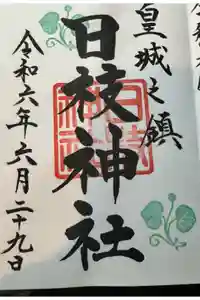 皇城之鎮
日枝神社
令和六年六月二十九日